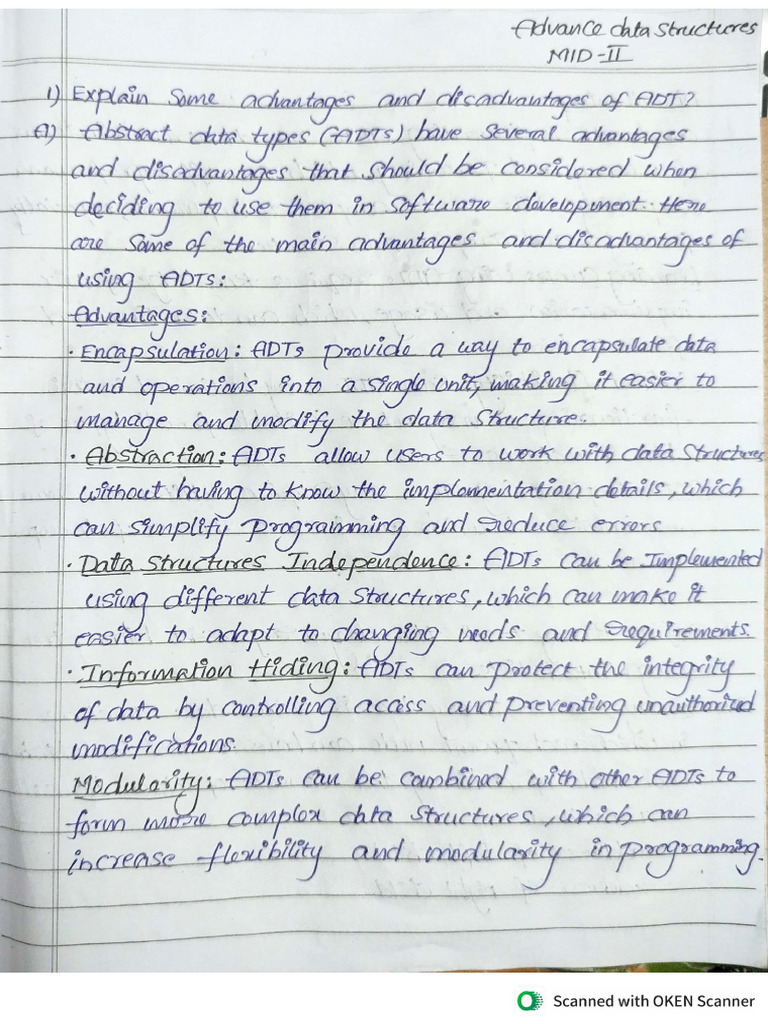 Advance data structures
MID-II
1) Explain Some advantages and disadvantages of ADT?
A) Abstract data types (ADTs) have several advantages
and disadvantages that should be considered when
deciding to use them in software development. Here
are some of the main advantages and disadvantages of
using ADTs:
Advantages:
· Encapsulation: ADTs provide a way to encapsulate data
and operations into a single unit, making it easier to
manage and modify the data structure.
· Abstraction: ADTs allow users to work with data structures
without having to know the implementation details, which
can simplify programming and reduce errors
· Data Structures Independence: ADTs can be Implemented
using different data structures, which can make it
easier to adapt to changing needs and requirements.
· Information Hiding: ADTs can protect the integrity
of data by controlling access and preventing unauthorized
modifications.
Modularity: ADTs can be combined with other ADTs to
form more complex data structures, which can
increase flexibility and modularity in programming.
Scanned with OKEN Scanner